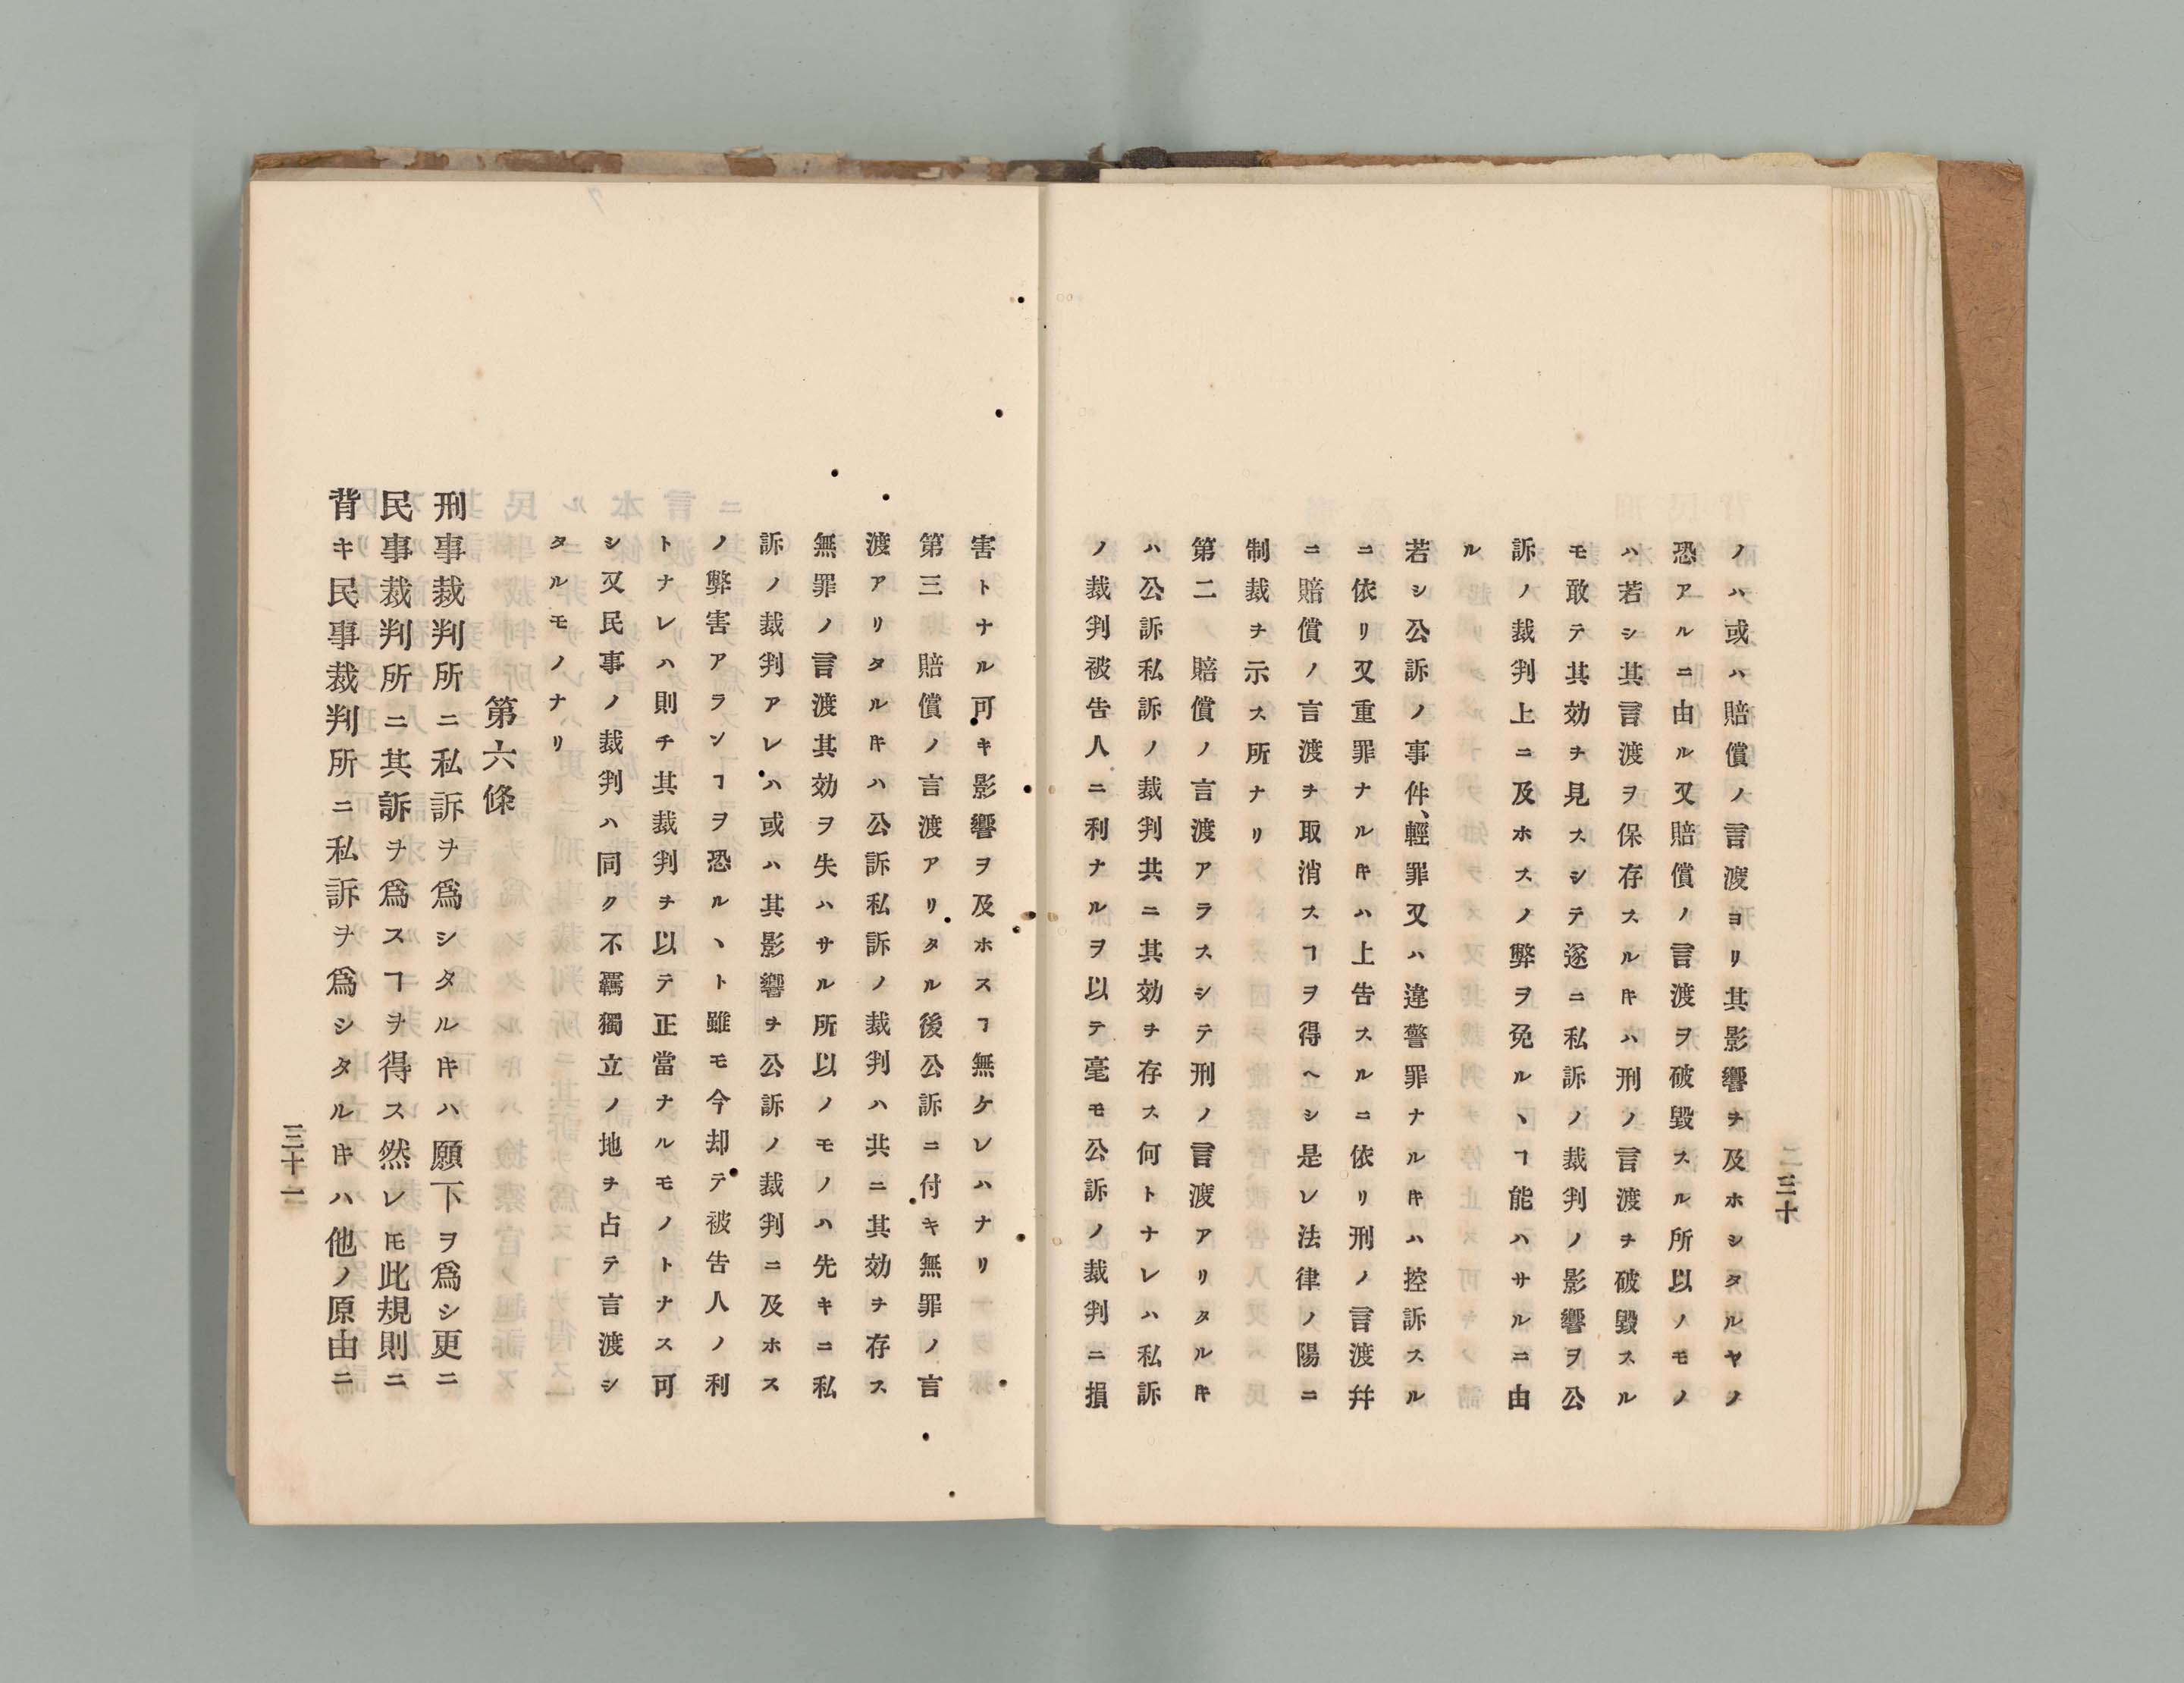 ノハ或ハ賠償ノ言渡ヨリ其影響ヲ及ホシタルヤノ
恐アルニ由ル又賠償ノ言渡ヲ破毀スル所以ノモノ
ハ若シ其言渡ヲ保存スルキハ刑ノ言渡ヲ破毀スル
モ敢テ其効ヲ見スシテ遂ニ私訴ノ裁判ノ影響ヲ公
訴ノ裁判上ニ及ホスノ弊ヲ免ルヽヿ能ハサルニ由
ル
若シ公訴ノ事件、輕罪又ハ違警罪ナルキハ控訴スル
ニ依リ又重罪ナルキハ上告スルニ依リ刑ノ言渡幷
ニ賠償ノ言渡ヲ取消スヿヲ得ヘシ是レ法律ノ陽ニ
制裁ヲ示ス所ナリ
第二　賠償ノ言渡アラスシテ刑ノ言渡アリタルキ
ハ公訴私訴ノ裁判共ニ其効ヲ存ス何トナレハ私訴
ノ裁判被告人ニ利ナルヲ以テ毫モ公訴ノ裁判ニ損
三十
害トナル可キ影響ヲ及ホスヿ無ケレハナリ
第三　賠償ノ言渡アリタル後公訴ニ付キ無罪ノ言
渡アリタルキハ公訴私訴ノ裁判ハ共ニ其効ヲ存ス
無罪ノ言渡其効ヲ失ハサル所以ノモノハ先キニ私
訴ノ裁判アレハ或ハ其影響ヲ公訴ノ裁判ニ及ホス
ノ弊害アランヿヲ恐ルヽト雖モ今却テ被告人ノ利
トナレハ則チ其裁判ヲ以テ正當ナルモノトナス可
シ又民事ノ裁判ハ同ク不羈獨立ノ地ヲ占テ言渡シ
タルモノナリ
第六條
刑事裁判所ニ私訴ヲ爲シタルキハ願下ヲ爲シ更ニ
民事裁判所ニ其訴ヲ爲スヿヲ得ス然レ𪜈此規則ニ
背キ民事裁判所ニ私訴ヲ爲シタルキハ他ノ原由ニ
三十一